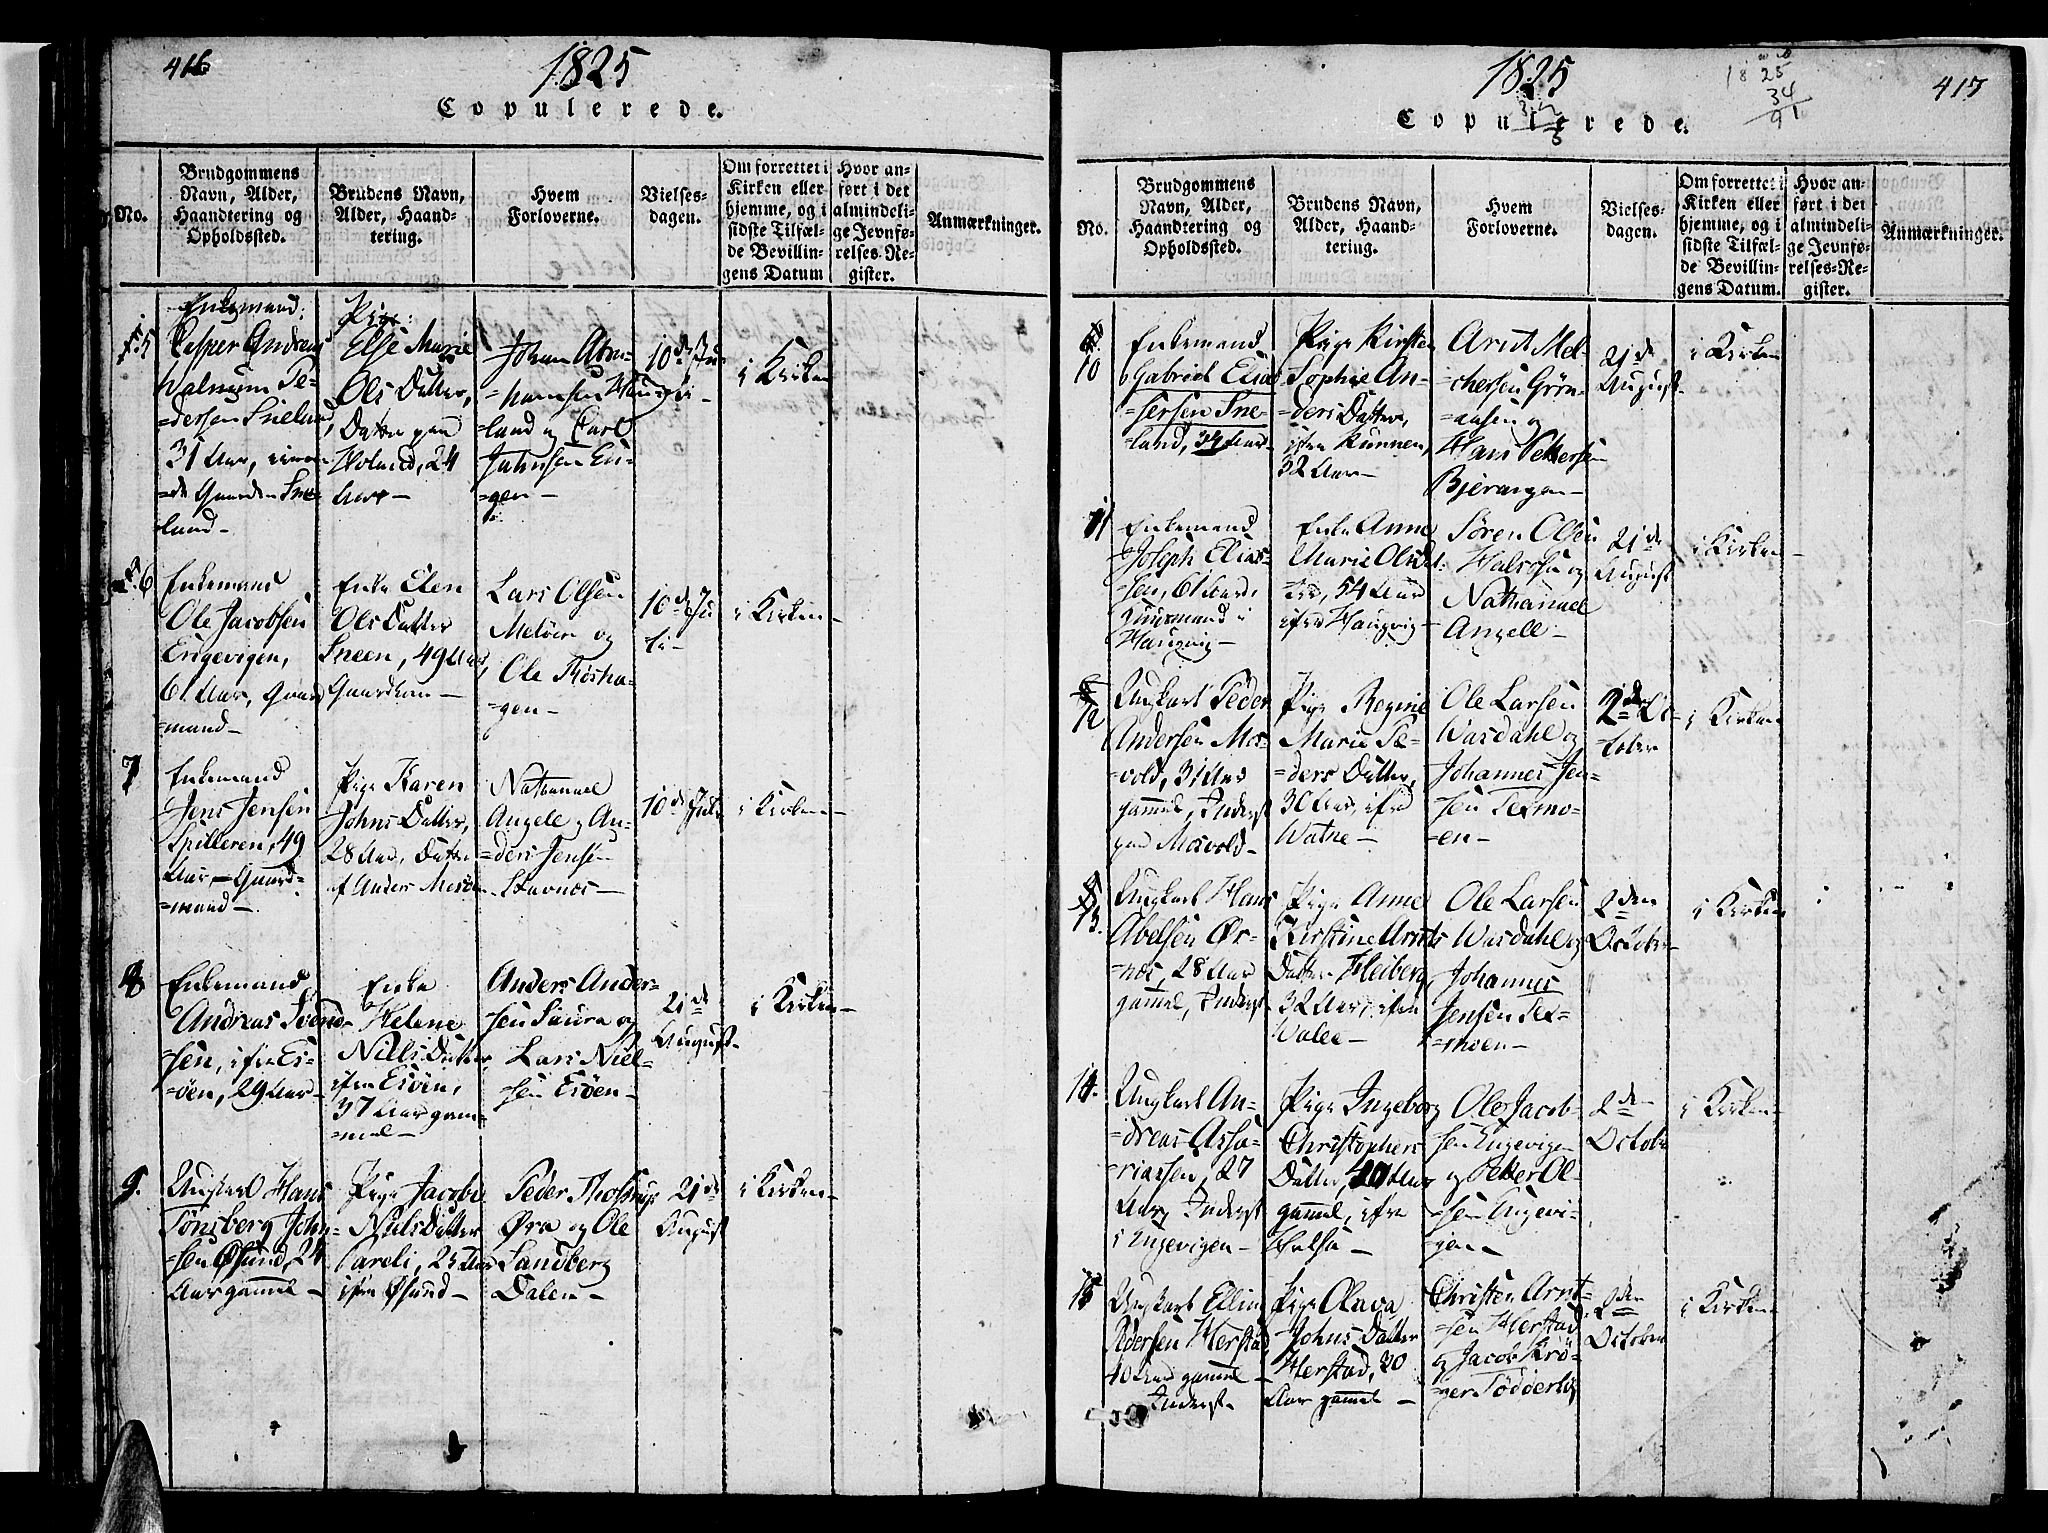 416
1825
Copulerede.
No.
Brudgommens
Navn, Alder,
Haandtering og
Opholdssted.
Brudens Navn,
Alder, Haand-
tering.
Hvem
Forloverne.
Vielses-
dagen.
Om forrettet i
Kirken eller
hjemme, og i
sidste Tilfæl-
de Bevillin-
gens Datum
Hvor an-
ført i det
almindeli-
ge Jevnfø-
relses-Re-
gister.
Anmærkninger.
5
Enkemand
Casper Andreas
Walnum Pe-
dersen Sneland,
31 Aar,
=de Gaarden Sne
land-
Pige
Else Marie
Ols Datter,
Datter paa
24
Aar-
Johan Abra-
=hamsen Haugs-
=land og Carl
Johnsen En-
=gen-
10de Ju-
li-
i Kirken
6
Enkemand
Ole Jacobsen
Engevigen,
61 Aar, Gaard
=mand-
Enke Elen
Ols Datter
Sneen, 49 Aar,
Gaardkone-
Lars Olsen
Meløen og
Ole Røsha-
=gen-
10de Ju
li-
i Kirken-
7
Enkemand
Jens Jensen
Spilleren, 49
Aar, Gaard-
=mand-
Pige Karen
Johns Datter,
28 Aar, Datter
af Anders
Nathanael
Angele og An-
=ders Jensen
Stavnes-
10de Juli
i Kirken-
8
Enkemand
Andreas Svend-
sen, ifra Es-
=øen, 29 Aar-
Enke
Helene
Niels Datter
ifra Esøen,
37 Aar gam-
=mel-
Anders Ander-
sen Saura og
Lars Niel-
sen Esøen-
21de
August-
i Kirken-
9.
Ungkarl Hans
Tønsberg John-
=sen Øsund, 24
Aar gammel-
Pige Jacobe
Niels Datter
Careli, 25 Aar
ifra Øsund-
Peder Thostrup
Øra og Ole
Sandberg
Dalen-
21de
August
i Kirken-
1825
18 25
34
91
417
Copulerede.
No.
Brudgommens
Navn, Alder,
Haandtering og
Opholdssted.
Brudens Navn,
Alder, Haand-
tering.
Hvem
Forloverne.
Vielses-
dagen.
Om forrettet i
Kirken eller
hjemme, og i
sidste Tilfæl-
de Bevillin-
gens Datum.
Hvor an-
ført i det
almindeli-
ge Jevnfø-
relses-Re-
gister.
Anmærkninger.
10
Enkemand
Gabriel Elias
=sersen Sne-
=land, 34 Aar
Pige Kirsten
Sophie An-
=ders Datter,
ifra Kunnen,
32 Aar-
Arnt Mel-
=chersen Grøn-
=aasen og
Hans Pettersen
Bjerangen-
21de
August
i Kirken
11
Enkemand
Joseph Elias-
sen, 61 Aar,
Huusmand i
Haugvig-
Enke Anne
Marie Olsdat-
ter, 54 Aar
ifra Haugvig-
Søren Olsen
Halsøen og
Nathanael
Angell-
21de
August
i Kirken-
12
Ungkarl Peder
Andersen Mos-
=vold, 31 Aar
gammel, Inderst
paa Mosvold-
Pige Regine
Marie Pe-
=ders Datter,
30 Aar, ifra
Watne-
Ole Larsen
Wasdahl og
Johannes Jen-
sen Texmo-
=en-
2den Oc-
=tober
i Kirken
13.
Ungkarl Hans
Abelsen Ør-
=nes, 28 Aar
gammel, Inderst
Pige Anne
Kirstine Arnts
Datter Heiberg
32 Aar, ifra
Valee-
Ole Larsen
Wasdahl og
Johannes
Jensen Tex-
=moen-
2den
October
i Kirken
14.
Ungkarl An-
=dreas Assa-
riassen, 27
Aar, Inderst
i Engevigen-
Pige Ingeborg
Christophers
Datter, 40 Aar
gammel, ifra
Halsa-
Ole Jacob-
=sen Engevigen
og Petter Ol-
=sen Engevi-
=gen-
2den
October
i Kirken-
15
Ungkarl Elling
Pedersen Herstad,
40 Aar gammel-
Inderst-
Pige Olava
Johns Datter
Herstad, 30
Aar gammel-
Christen Arnt-
=sen Herstad
og Jacob Krø-
=ger Tødderby
2den
October
i Kirken-